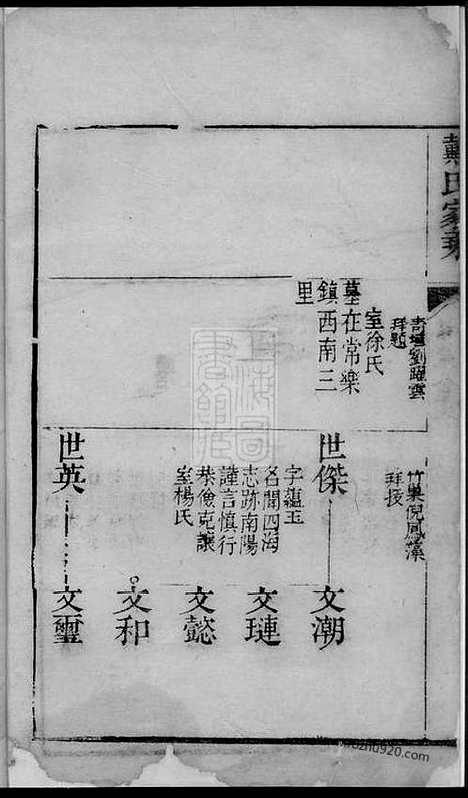 戴氏家乘
壽壇劉躍雲
拜題
室徐氏
墓在常樂
鎮西南三
里
竹巢倪鳳藻
拜授
世傑
字蘊玉
名聞四海
志跡南陽
謹言慎行
恭儉克讓
室楊氏
世英
文潮
文璉
文懿
文和
文璽
上海圖
書館藏
zhu920.com